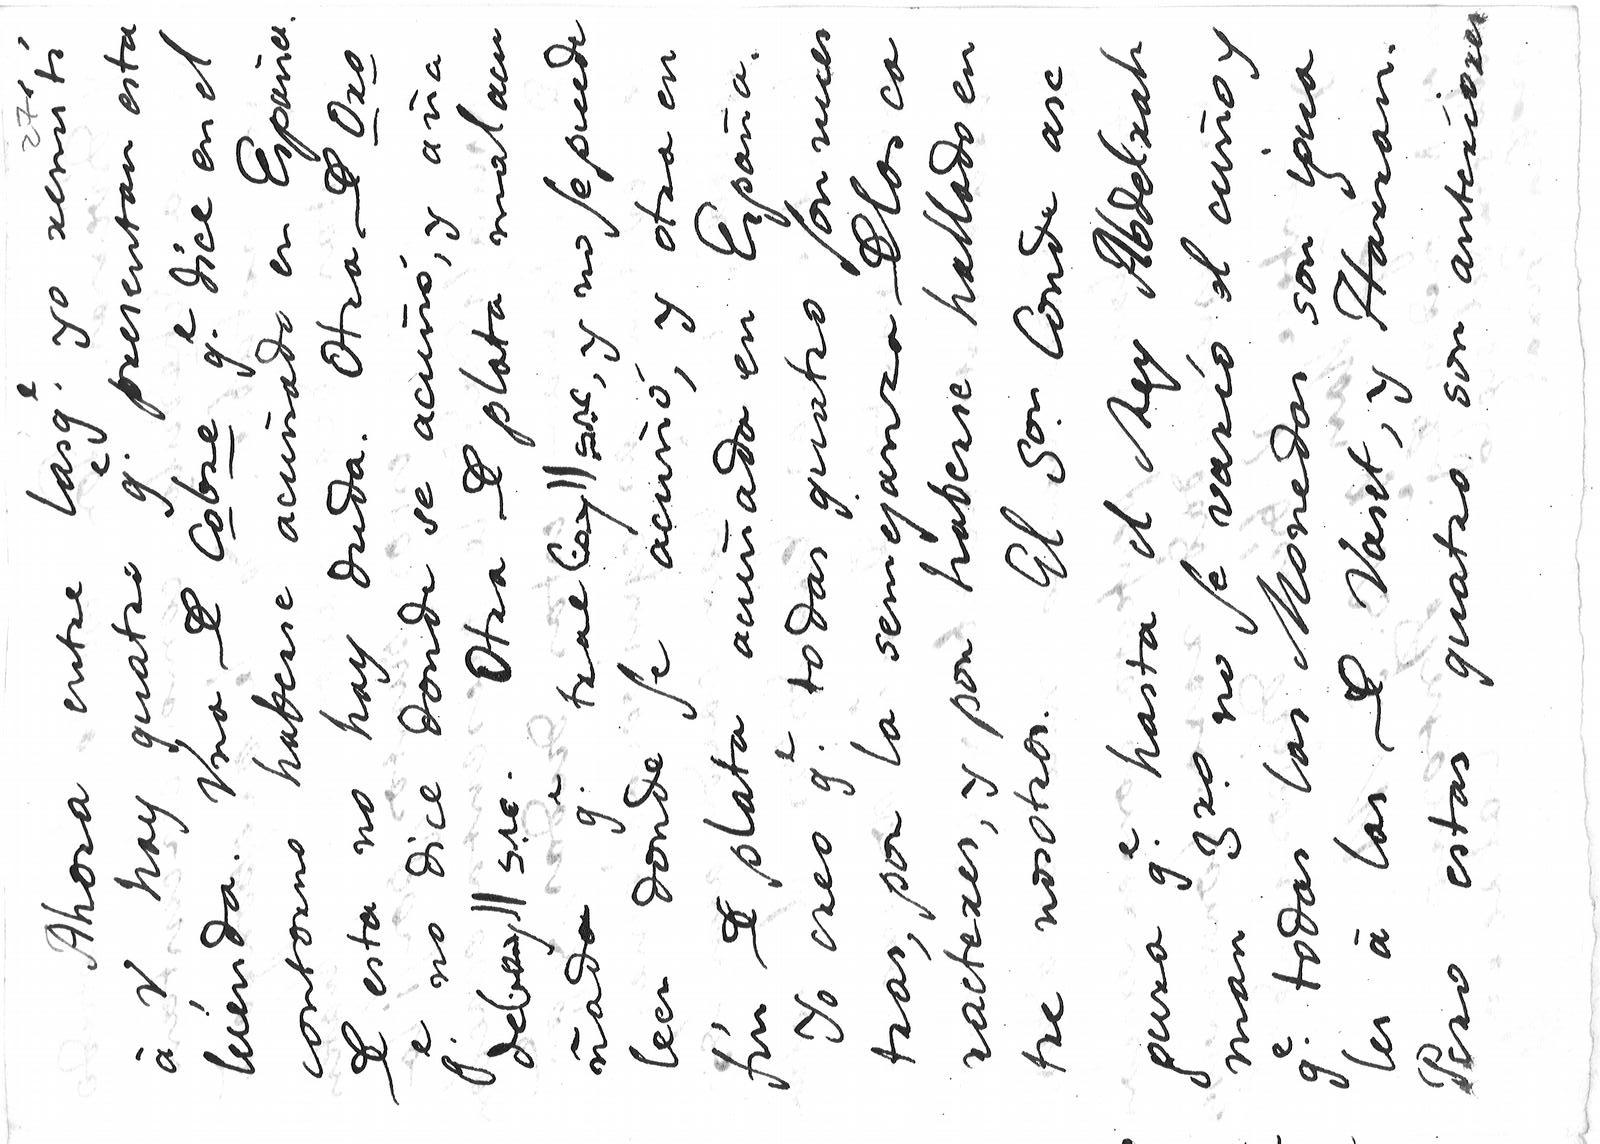 27.
Ahora entre las q.e yo remití
à V hay quatro q.e presentan esta
leienda. Vna de Cobre q.e dice en el
contorno haberse acuñado en España.
de esta no hay duda. Otra de Oro
q.e no dice donde se acuñó, y aña
de bajo|| s.re. Otra de plata mal acu
ñada q.e trae Cay|| sre, y no se puede
leer donde se acuñó, y otra en
fin de plata acuñada en España.
Yo creo q.e todas quatro son nues
tras, por la semejanza de los ca
racteres, y por haberse hallado en
tre nosotros. El S.or Conde ase
gura q.e hasta el Rey Abdelrah
man 3ro. no se varió el cuño y
q.e todas las Monedas son igua
les à las de Vaset, y Harran.
Pero estas quatro son anteriores